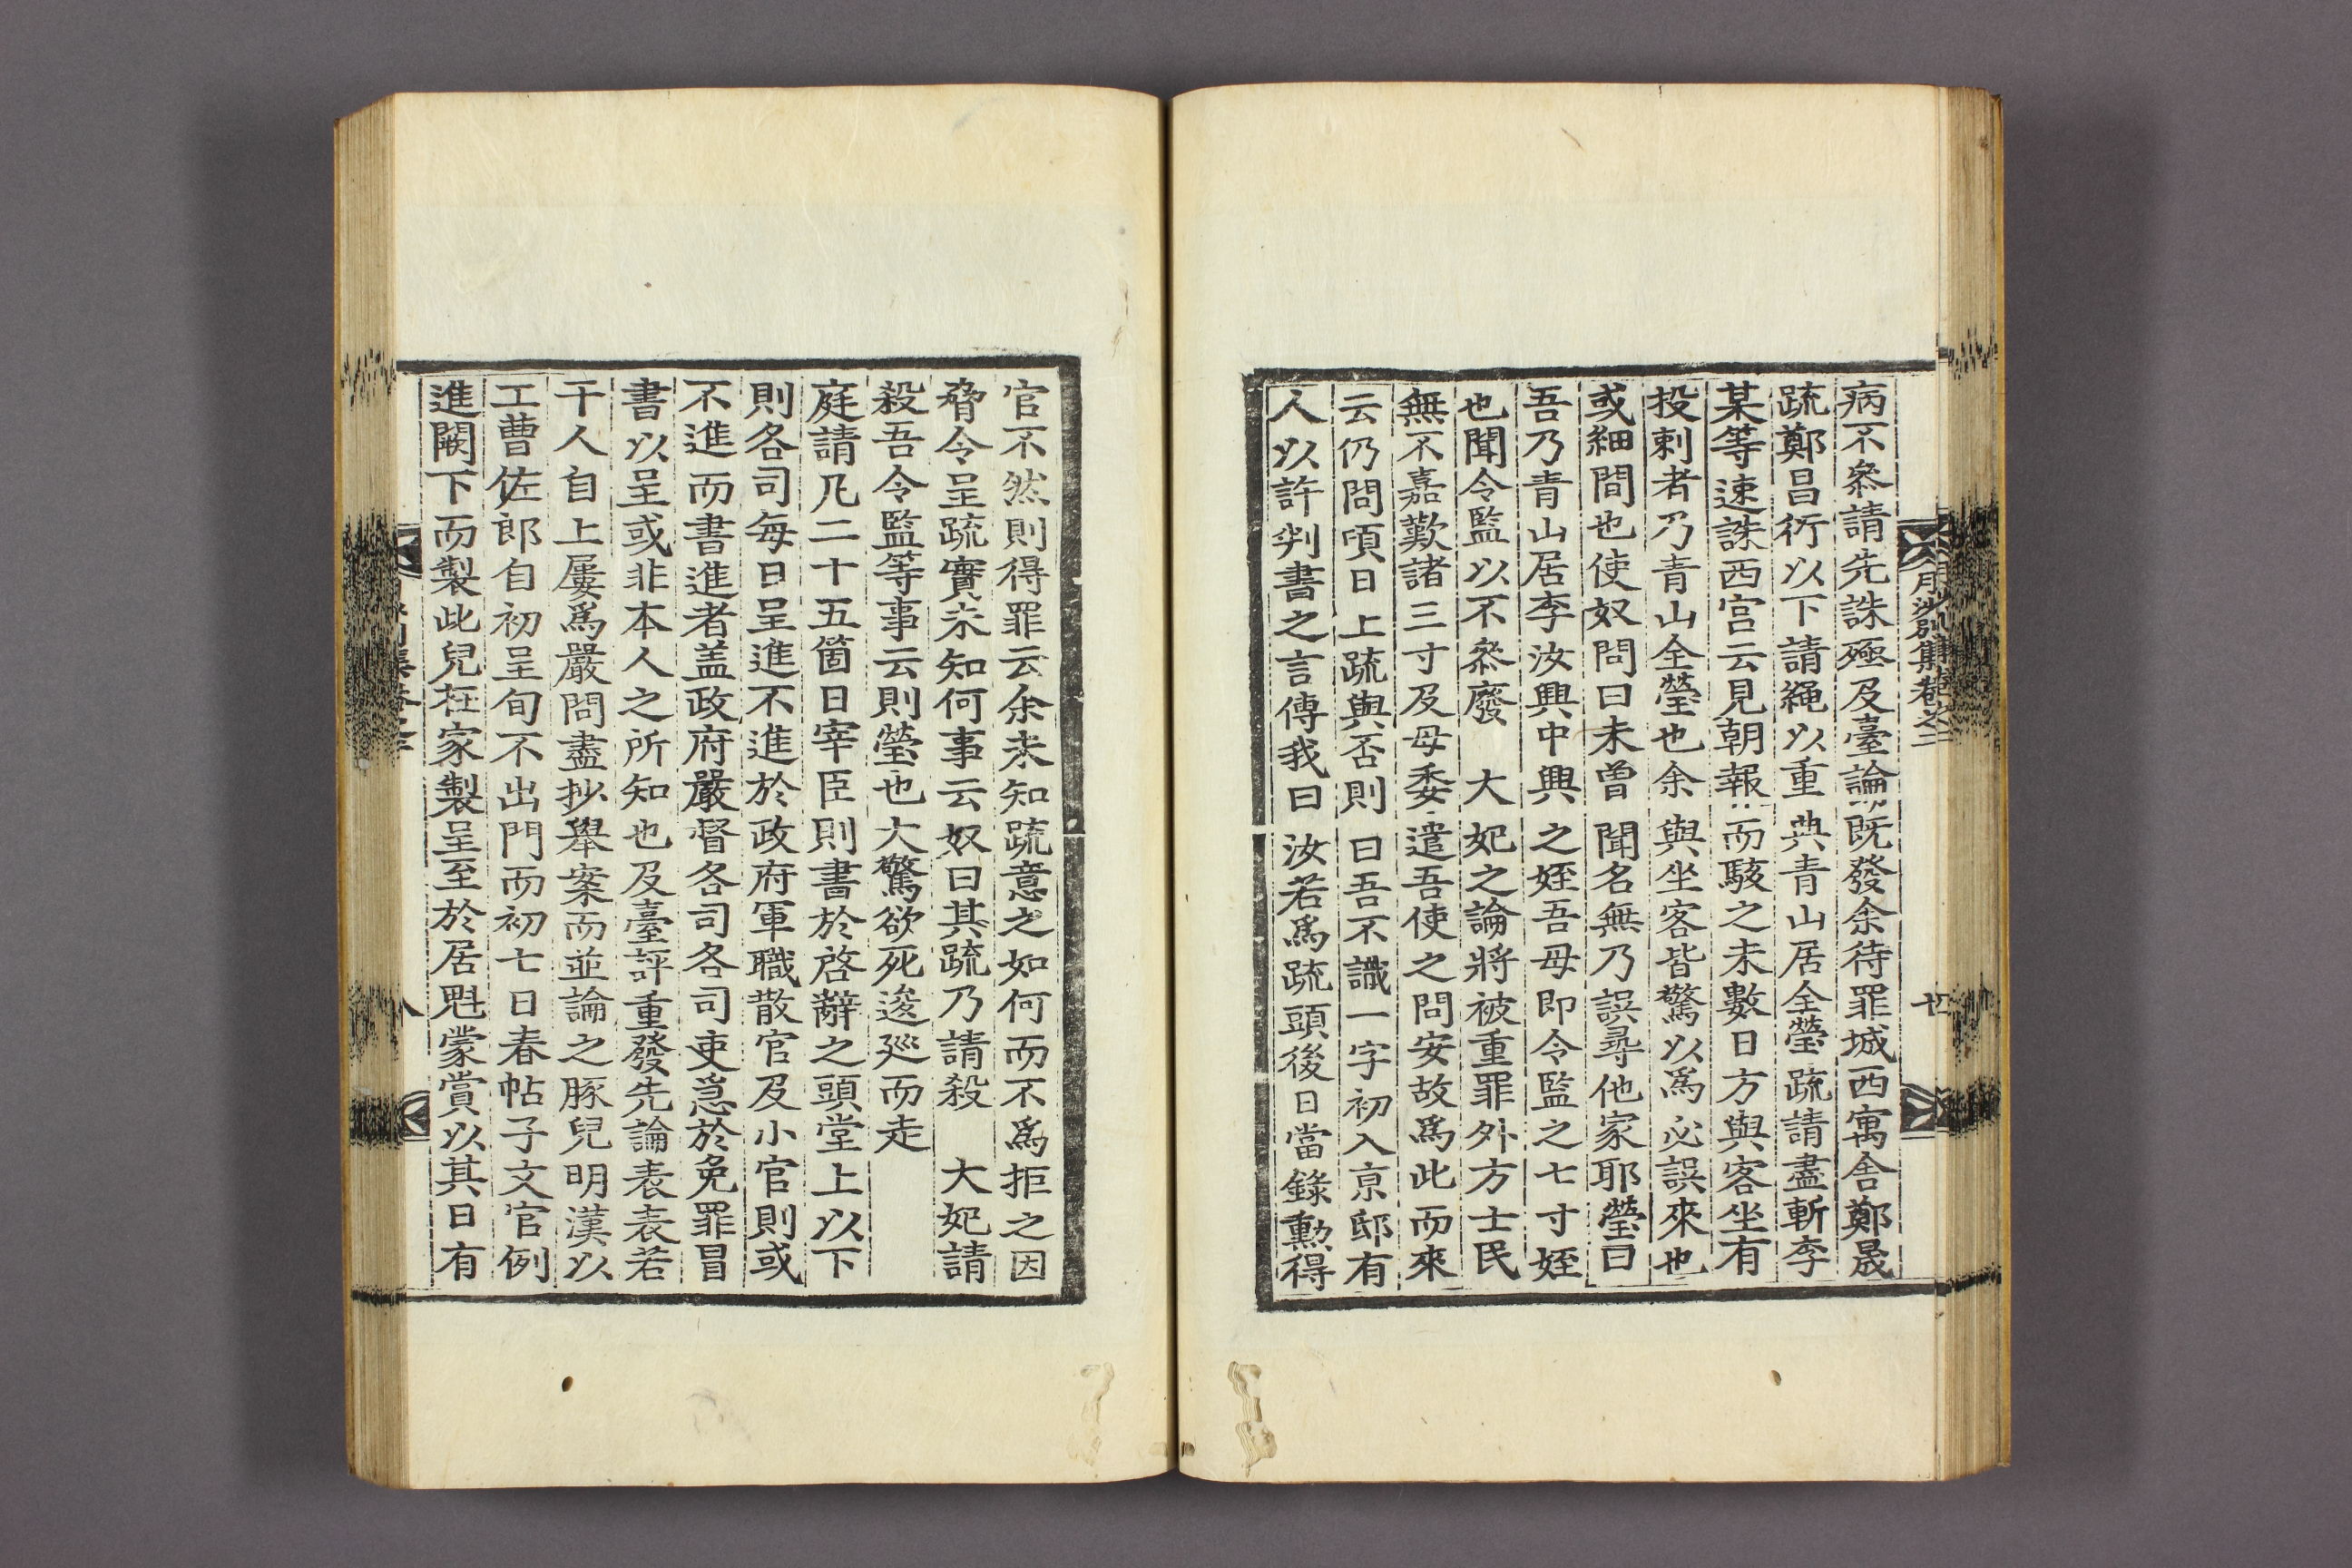 病不叅請先誅殛及臺論旣發余待罪城西寓舍鄭晟
疏鄭昌衍以下請繩以重典靑山居全瑩疏請盡斬李
某等速誅西宮云見朝報而駭之未數日方與客坐有
投刺者乃靑山全瑩也余與坐客皆驚以爲必誤來也
或細間也使奴問曰未曾聞名無乃誤尋他家耶瑩曰
吾乃靑山居李汝興中興之姪吾母即令監之七寸姪
也聞令監以不叅廢 大妃之論將被重罪外方士民
無不嘉歎諸三寸及母委遣吾使之問安故爲此而來
云仍問頃日上疏與否則曰吾不識一字初入京邸有
人以許判書之言傳我曰汝若爲疏頭後日當錄勳得
月沙別集卷之
官不然則得罪云余未知疏意之如何而不爲拒之因
脅令呈疏實未知何事云奴曰其疏乃請殺 大妃請
殺吾令監等事云則瑩也大驚欲死逡巡而走
庭請凡二十五箇日宰臣則書於啓辭之頭堂上以下
則各司每日呈進不進於政府軍職散官及小官則或
不進而書進者盖政府嚴督各司各司吏急於免罪冒
書以呈或非本人之所知也及臺評重發先論表表若
干人自上屢爲嚴問盡抄擧案而並論之豚兒明漢以
工曹佐郎自初呈旬不出門而初七日春帖子文官例
進闕下而製此兒在家製呈至於居魁蒙賞以其日有